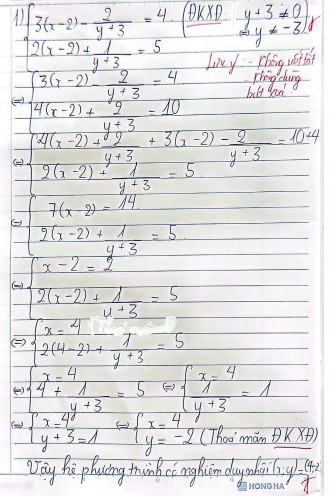 1) { 3(x-2) - 2/(y+3) = 4. (ĐKXĐ: y+3 ≠ 0
{ 2(x-2) + 1/(y+3) = 5 ⇔ y ≠ -3)
Lưu ý: - Không viết tắt
- Không dùng
bút xoá
⇔ { 3(x-2) - 2/(y+3) = 4
{ 4(x-2) + 2/(y+3) = 10
⇔ { 4(x-2) + 2/(y+3) + 3(x-2) - 2/(y+3) = 10+4
{ 2(x-2) + 1/(y+3) = 5.
⇔ { 7(x-2) = 14.
{ 2(x-2) + 1/(y+3) = 5.
⇔ { x-2 = 2
{ 2(x-2) + 1/(y+3) = 5
⇔ { x = 4
{ 2(4-2) + 1/(y+3) = 5
⇔ { x = 4
{ 4 + 1/(y+3) = 5 ⇔ { x = 4
{ 1/(y+3) = 1
⇔ { x = 4
{ y+3 = 1 ⇔ { x = 4
{ y = -2 (Thoả mãn ĐKXĐ)
Vậy hệ phương trình có nghiệm duy nhất (x;y) = (4;-2
HONG HA